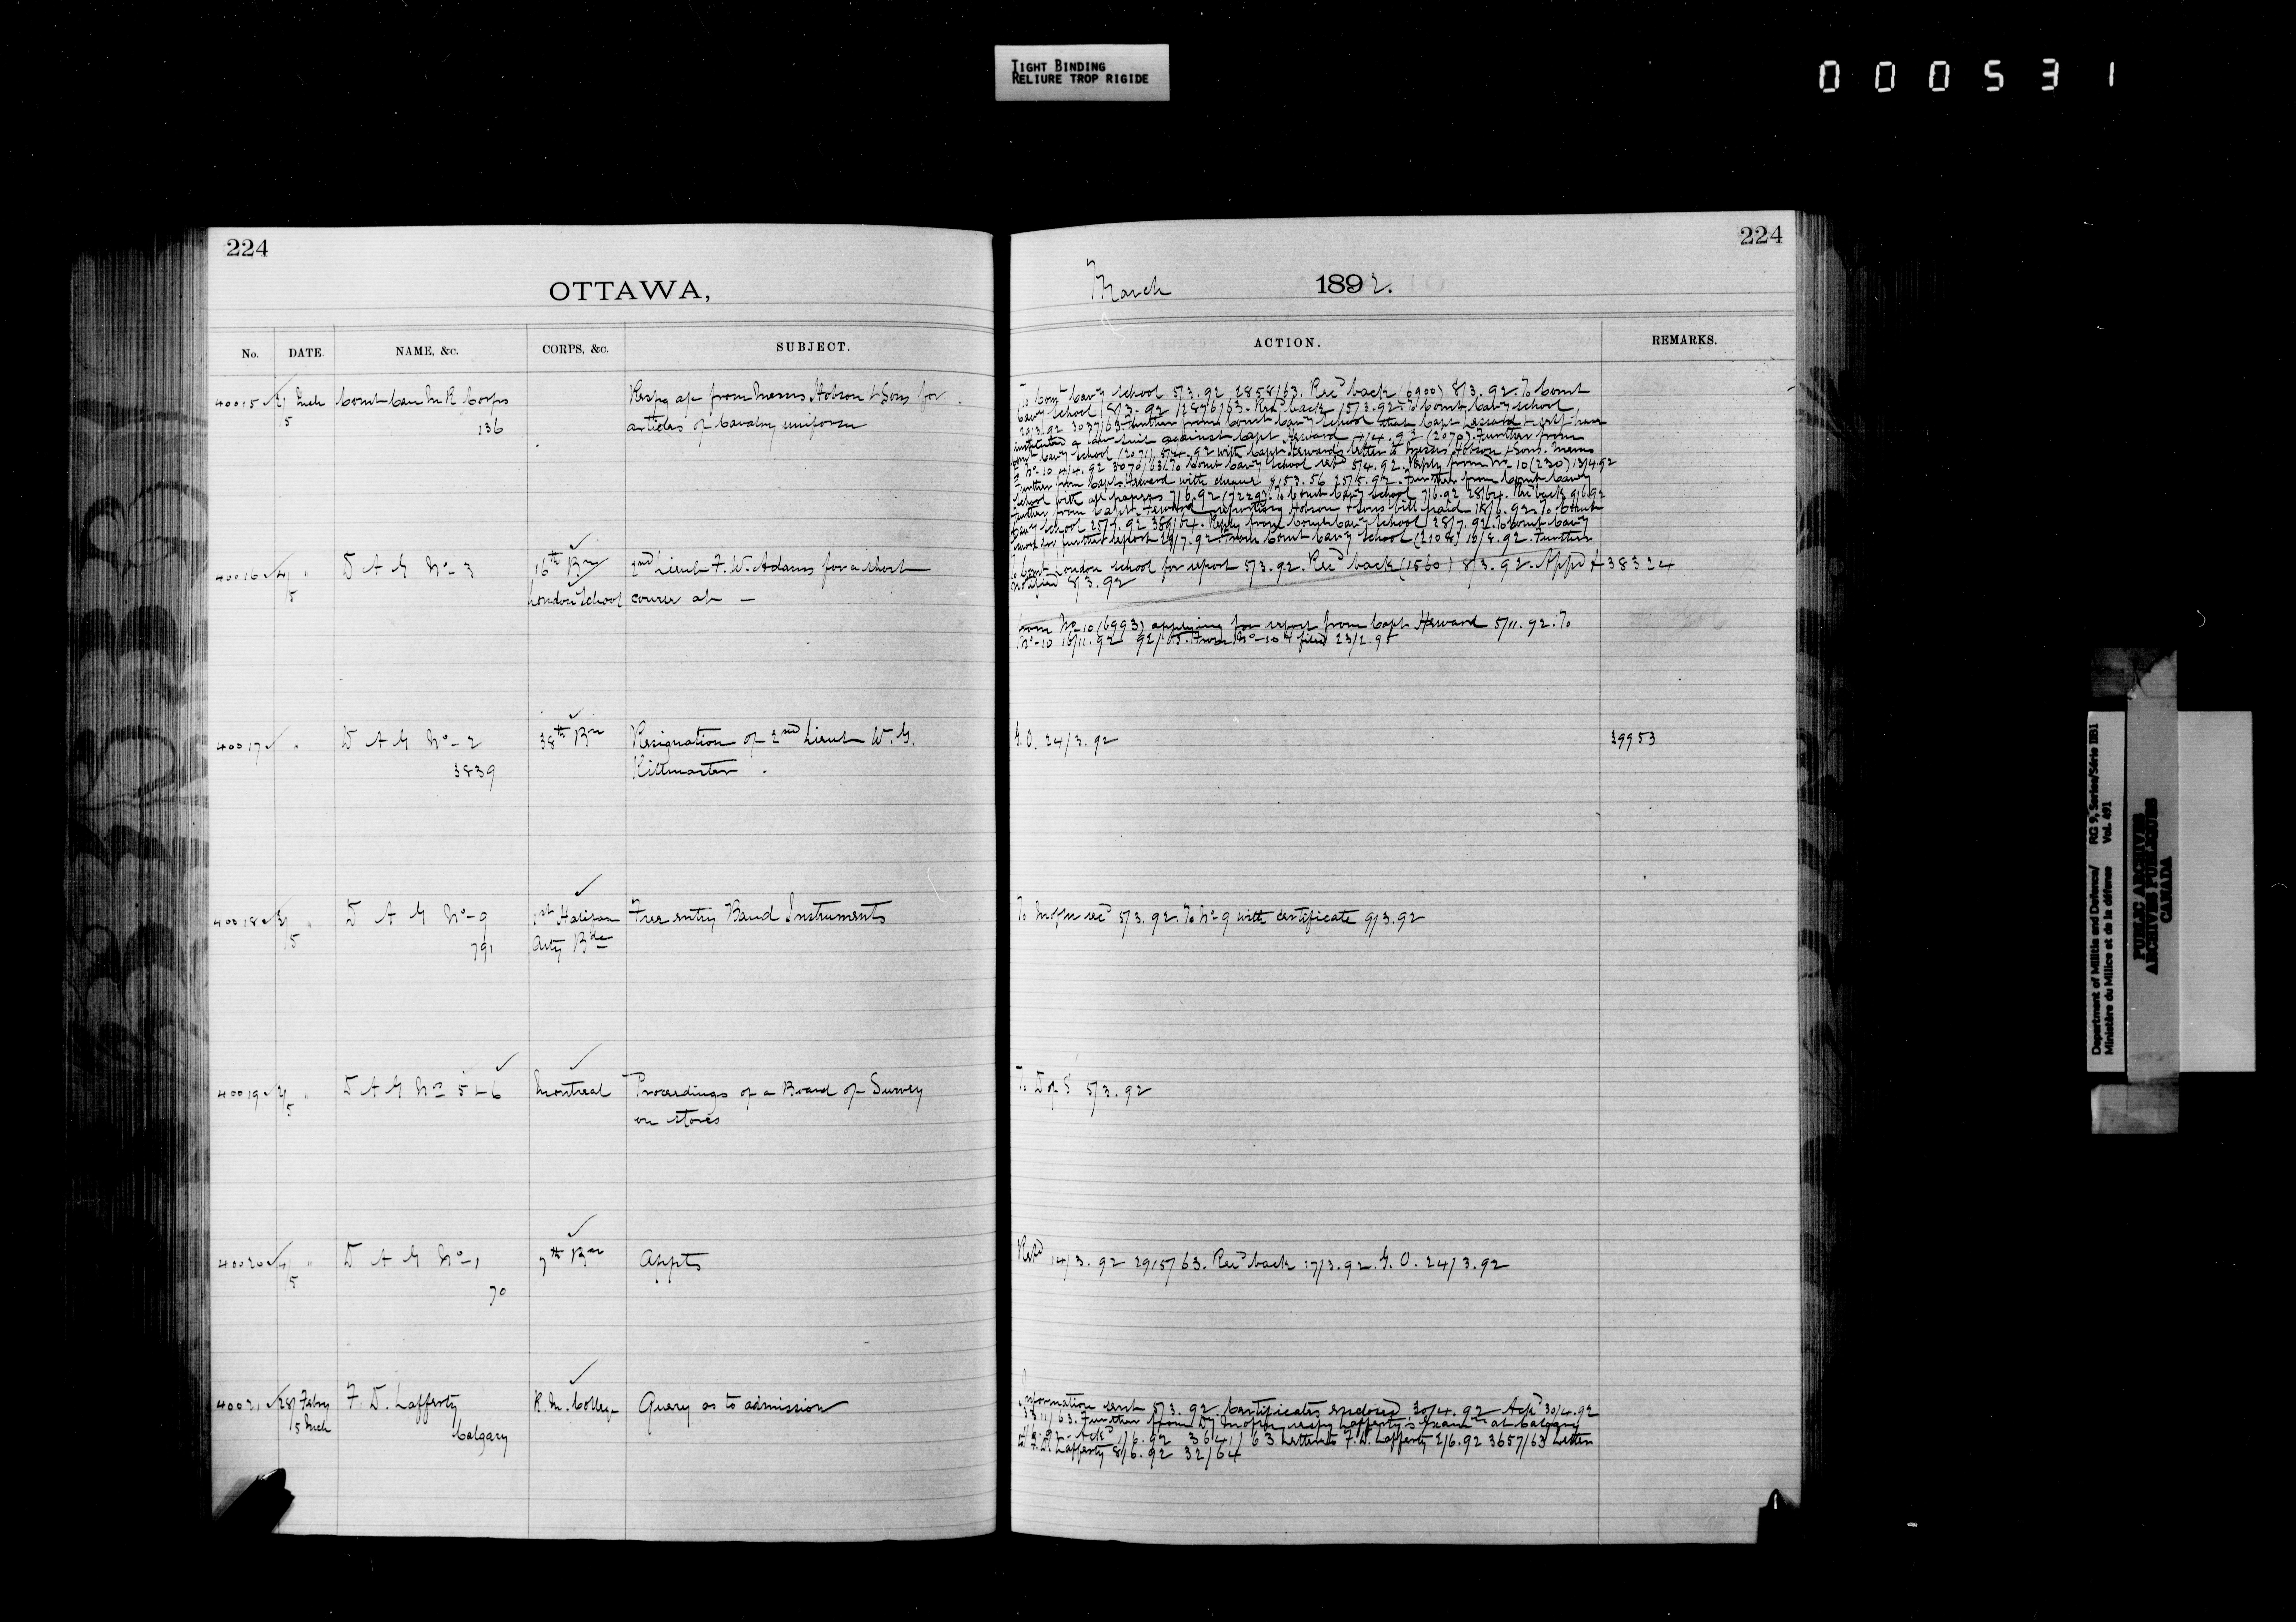 TIGHT BINDING
RELIURE TROP RIGIDE
000531
224
OTTAWA,
No. DATE. NAME, &c. CORPS, &c. SUBJECT.
40015 Mch Comt Can M R Corps Respg a/c from Messrs Hobson & Sons for
5 136 articles of Cavalry uniform
40016 4/ " D A G No 3 16th Bn 2nd Lieut F. W. Adams for a short
5 London School course at —
40017 " D A G No 2 38th Bn Resignation of 2nd Lieut W. G.
3839 Kittmaster .
40018 " D A G No 9 1st Halifax Free entry Band Instruments
5 791 Arty Bde
40019 " D A G No 5 & 6 Montreal Proceedings of a Board of Survey
5 on stores
40020 4/ " D A G No 1 7th Bn Appts
5 70
40021 28/ Feby F. D. Lafferty R. M. College Query as to admission
5 Mch Calgary
224
March 1892.
ACTION. REMARKS.
To Comt Cavy School 5/3.92 2858/63. Recd back (6900) 8/3.92. To Comt
Cavy School 8/3.92 2876/63. Recd back 15/3.92. To Comt Cavy School
29/3.92 3037/63 Further from Comt Cavy School that Capt
instituted a law suit against Capt Heward 4/4.92 (2070). Further from
Comt Cavy School (2071) 5/4.92 with Capt Heward's letter to Messrs Hobson & Sons. Memo
No 10 4/4.92 3070/63. To Comt Cavy School 5/4.92. Reply from No 10 (230) 13/4.92
Further from Capt Heward with cheque $153.56 25/5.92. Further from Comt Cavy
School with all papers 7/6.92 (7229). To Comt Cavy School 7/6.92 28/64. Recd back 9/6.92
Further from Capt Heward reporting Hobson & Sons bill paid 18/6.92. To Comt
Cavy School 25/7.92 389/64. Reply from Comt Cavy School 28/7.92. To Comt Cavy
School for further report 29/7.92. From Comt Cavy School (2108) 16/8.92. Further
To Comt London School for report 5/3.92. Recd back (1560) 8/3.92. Appd & 38324
notified 8/3.92
from No 10 (6993) applying for report from Capt Heward 5/11.92. To
No 10 16/11.92 92/65. From No 10 & filed 23/2.95
G.O. 24/3.92 39953
To 5/3.92. To No 9 with certificate 9/3.92
To D of S 5/3.92
Retd 14/3.92 2915/63. Recd back 17/3.92. G.O. 24/3.92
Information sent 5/3.92. Certificates enclosed 30/4.92 Ackd 30/4.92
Further from respg Lafferty's Examn at Calgary
Ackd 1/6.92 3641/63. Letter to F. D. Lafferty 2/6.92 3657/63 Letter
to F. D. Lafferty 8/6.92 32/64
Department of Militia and Defence/ RG 9, Series/Série IIB1
Ministère du Milice et de la défense Vol. 491
PUBLIC ARCHIVES
ARCHIVES PUBLIQUES
CANADA